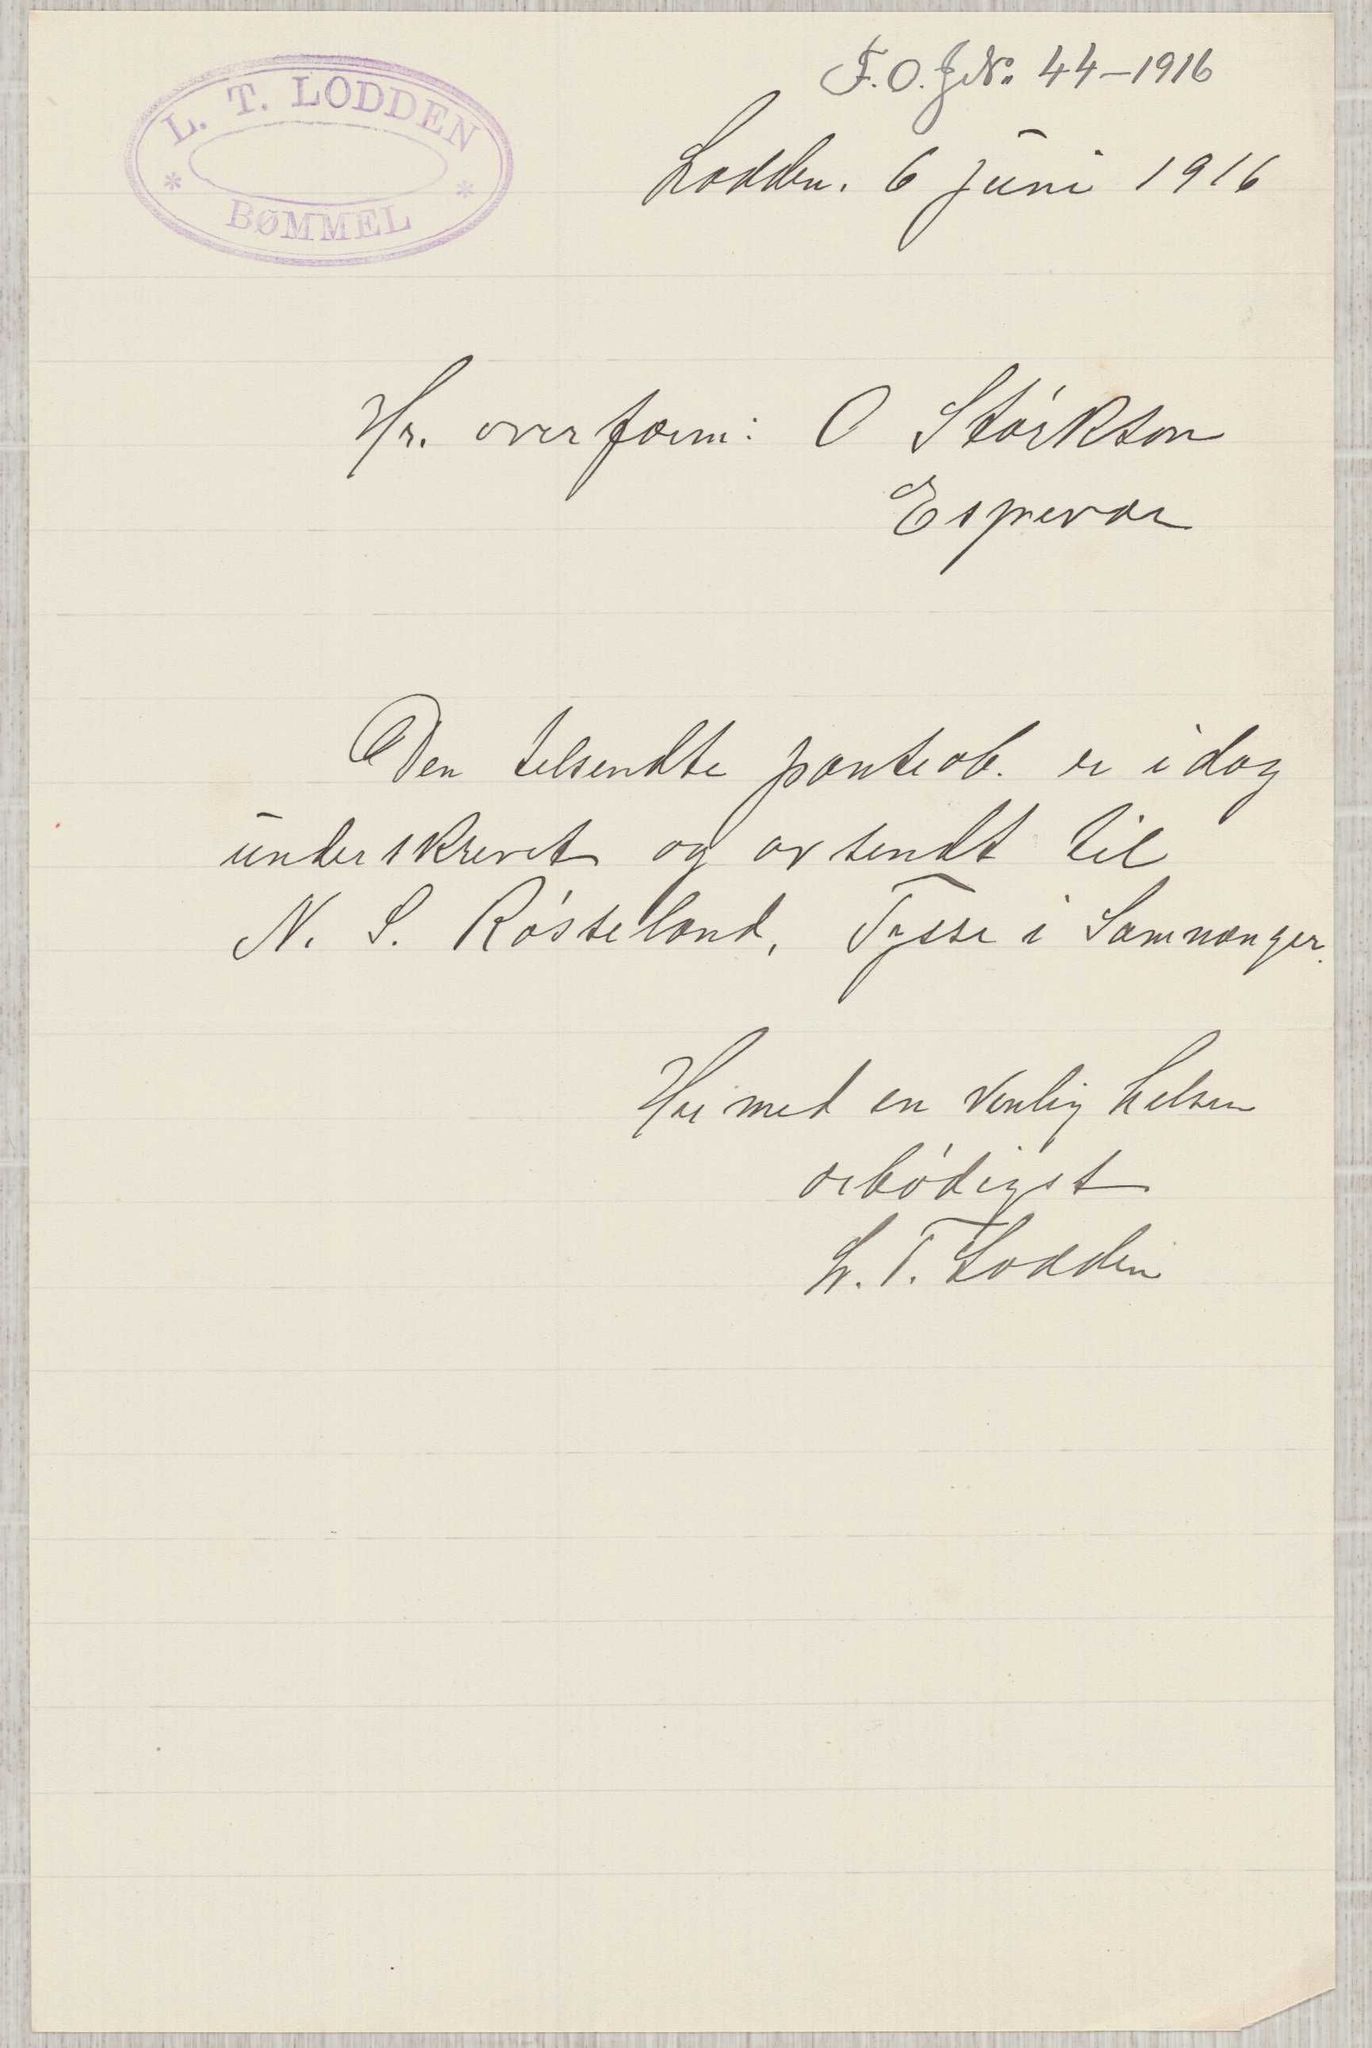 L. T. LODDEN
BØMMEL
F. O. J.No. 44-1916
Lodden. 6 juni 1916
Hr. overform: O Størkson
Espevær
Den telsendte panteob. er idag
underskrevet og avsendt til
N. S. Røsseland, Tysse i Samnanger.
Her med en venlig helsen
ærbødigst
L. T. Lodden